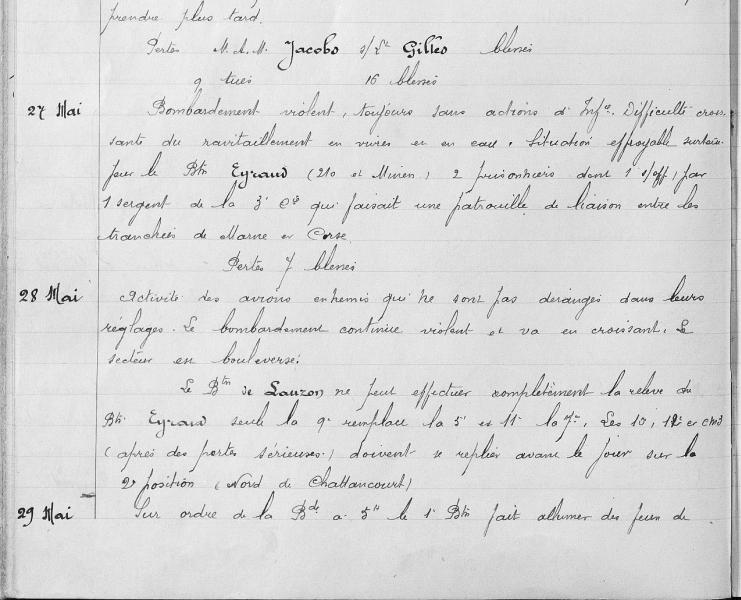 prendre plus tard.
Pertes M.A.M. Jacobs s/Lt Gilles blessés
9 tués 16 blessés
27 Mai Bombardement violent, toujours sans actions d'Infie. Difficulté crois-
sante du ravitaillement en vivres et en eau. Situation effroyable surtout
pour le Btn Eyraud (210 et Minen) 2 prisonniers dont 1 s/off, par
1 sergent de la 3e Cie qui faisait une patrouille de liaison entre les
tranchées de Marne et Corse.
Pertes 7 blessés
28 Mai Activité des avions ennemis qui ne sont pas dérangés dans leurs
réglages. Le bombardement continue violent et va en croissant. Le
secteur est bouleversé.
Le Btn de Lauzon ne peut effectuer complètement la relève du
Btn Eyraud seule la 9e remplace la 5e et 11e la 7e. Les 10, 12e et
(après des pertes sérieuses) doivent se replier avant le jour sur la
2e position (Nord de Chattancourt)
29 Mai Sur ordre de la Bde a 5h le 1e Btn fait allumer des feux de